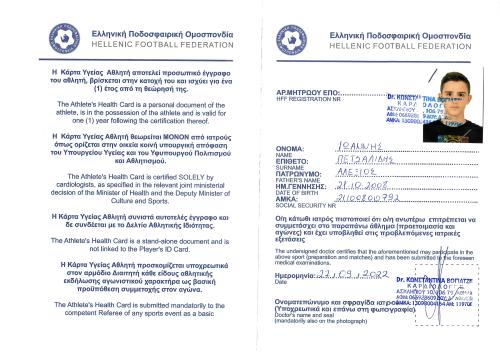 Ελληνική Ποδοσφαιρική Ομοσπονδία
HELLENIC FOOTBALL FEDERATION
Η Κάρτα Υγείας Αθλητή αποτελεί προσωπικό έγγραφο
του αθλητή, βρίσκεται στην κατοχή του και ισχύει για ένα
(1) έτος από τη θεώρησή της.
The Athlete's Health Card is a personal document of the
athlete, is in the possession of the athlete and is valid for
one (1) year following the certification thereof.
Η Κάρτα Υγείας Αθλητή θεωρείται ΜΟΝΟΝ από ιατρούς
όπως ορίζεται στην οικεία κοινή υπουργική απόφαση
του Υπουργείου Υγείας και του Υφυπουργού Πολιτισμού
και Αθλητισμού.
The Athlete's Health Card is certified SOLELY by
cardiologists, as specified in the relevant joint ministerial
decision of the Minister of Health and the Deputy Minister of
Culture and Sports.
Η Κάρτα Υγείας Αθλητή συνιστά αυτοτελές έγγραφο και
δε συνδέεται με το Δελτίο Αθλητικής Ιδιότητας.
The Athlete's Health Card is a stand-alone document and is
not linked to the Player's ID Card.
Η Κάρτα Υγείας Αθλητή προσκομίζεται υποχρεωτικά
στον αρμόδιο Διαιτητή κάθε είδους αθλητικής
εκδήλωσης αγωνιστικού χαρακτήρα ως βασική
προϋπόθεση συμμετοχής στον αγώνα.
The Athlete's Health Card is submitted mandatorily to the
competent Referee of any sports event as a basic
Ελληνική Ποδοσφαιρική Ομοσπονδία
HELLENIC FOOTBALL FEDERATION
ΑΡ.ΜΗΤΡΩΟΥ ΕΠΟ:
HFF REGISTRATION NR
ΟΝΟΜΑ: ΙΩΑΝΝΗΣ
NAME
ΕΠΙΘΕΤΟ: ΠΕΤΣΑΛΙΔΗΣ
SURNAME
ΠΑΤΡΩΝΥΜΟ: ΑΛΕΞΙΟΣ
FATHER'S NAME
ΗΜ.ΓΕΝΝΗΣΗΣ: 21.10.2008
DATE OF BIRTH
ΑΜΚΑ: 21100800792
SOCIAL SECURITY NR
Ο/η κάτωθι ιατρός πιστοποιεί ότι ο/η ανωτέρω επιτρέπεται να
συμμετάσχει στο παραπάνω άθλημα [προετοιμασία και
αγώνες] και έχει υποβληθεί στις προβλεπόμενες ιατρικές
εξετάσεις
The undersigned doctor certifies that the aforementioned may participate in the
above sport (preparation and matches) and has been submitted to the foreseen
medical examinations.
Ημερομηνία: 22.09.2022
Date
Dr. ΚΩΝΣΤΑΝΤΙΝΑ
ΚΑΡΔΙΟΛΟΓΟΣ
Ονοματεπώνυμο και σφραγίδα ιατρού
(Υποχρεωτικά και επάνω στη φωτογραφία)
Doctor's name and seal
(mandatorily also on the photograph)